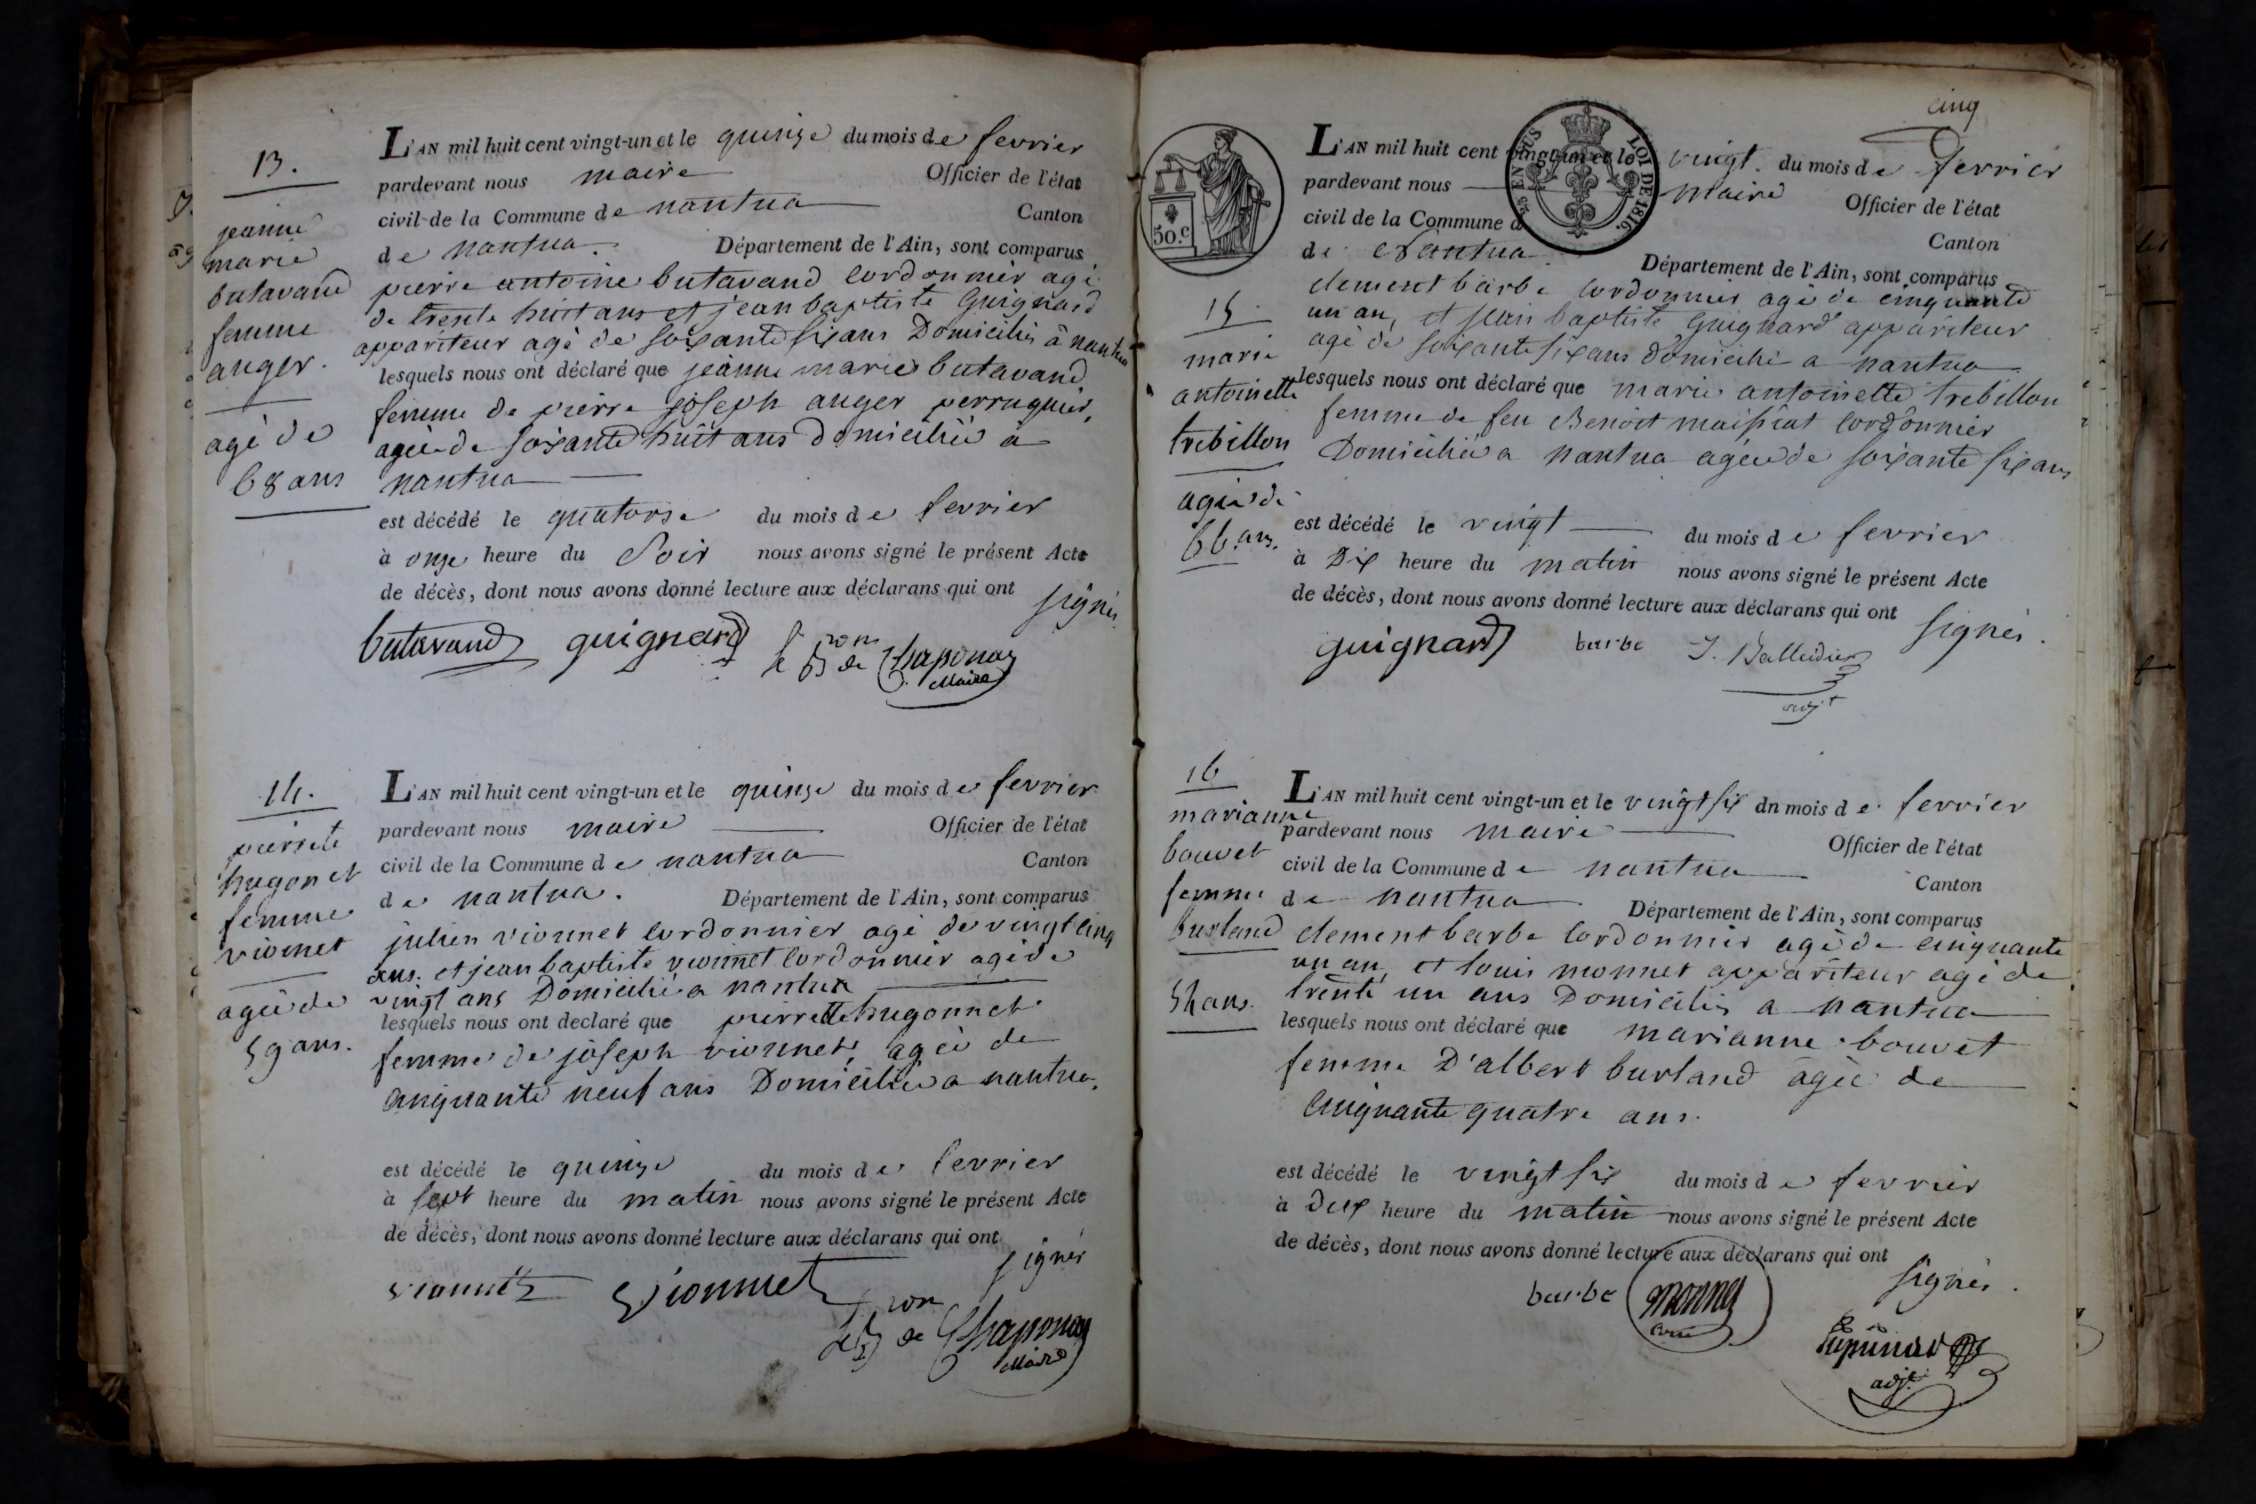 13.
jeanne
marie
butavand
femme
anger.
agé de
68 ans
L'AN mil huit cent vingt-un et le quinze du mois de fevrier
pardevant nous maire Officier de l'état
civil de la Commune de nantua Canton
de nantua. Département de l'Ain, sont comparus
pierre antoine butavand cordonnier agé
de trente huit ans et jean baptiste Guignard
appariteur agé de soixante six ans Domiciliés à nantua
lesquels nous ont déclaré que jeanne marie butavand
femme de pierre joseph anger perruquier,
agée de soixante huit ans domiciliée à
nantua
est décédé le quatorze du mois de fevrier
à onze heure du Soir nous avons signé le présent Acte
de décès, dont nous avons donné lecture aux déclarans qui ont signés
butavand guignard le Bon de Chaponay
Maire
14.
pierrette
hugonet
femme
vionnet
agée de
59 ans.
L'AN mil huit cent vingt-un et le quinze du mois de fevrier
pardevant nous maire Officier de l'état
civil de la Commune de nantua Canton
de nantua. Département de l'Ain, sont comparus
julien vionnet cordonnier agé de vingt cinq
ans. et jean baptiste vionnet cordonnier agé de
vingt ans Domicilié a nantua
lesquels nous ont declaré que pierrette hugonnet
femme de joseph vionnet, agée de
cinquante neuf ans Domiciliée a nantua.
est décédé le quinze du mois de fevrier
à sept heure du matin nous avons signé le présent Acte
de décès, dont nous avons donné lecture aux déclarans qui ont signés
vionnet Vionnet
le Bon de Chaponay
Maire
cinq
50.c
EN SUS LOI DE 1816.
15.
marie
antoinette
trebillon
agée de
66 ans.
L'AN mil huit cent vingt-un et le vingt. du mois de fevrier
pardevant nous maire Officier de l'état
civil de la Commune d Canton
de nantua Département de l'Ain, sont comparus
clement barbe cordonnier agé de cinquante
un an, et jean baptiste Guignard appariteur
agé de soixante six ans domicilié a nantua
lesquels nous ont déclaré que marie antoinette trebillon
femme de feu Benoit maissiat cordonnier
Domiciliée a nantua agée de soixante six ans
est décédé le vingt du mois de fevrier
à Dix heure du matin nous avons signé le présent Acte
de décès, dont nous avons donné lecture aux déclarans qui ont signés.
guignard barbe J. Balleidier
adjt
16
marianne
bouvet
femme
burland
54 ans.
L'AN mil huit cent vingt-un et le vingt six dn mois de fevrier
pardevant nous maire Officier de l'état
civil de la Commune de nantua Canton
de nantua Département de l'Ain, sont comparus
clement barbe cordonnier agé de cinquante
un an, et louis monnet appariteur agé de
trente un ans Domiciliés a nantua
lesquels nous ont déclaré que marianne bouvet
femme D'albert burland agée de
cinquante quatre ans.
est décédé le vingt six du mois de fevrier
à deux heure du matin nous avons signé le présent Acte
de décès, dont nous avons donné lecture aux déclarans qui ont signés.
barbe monnet
adjt